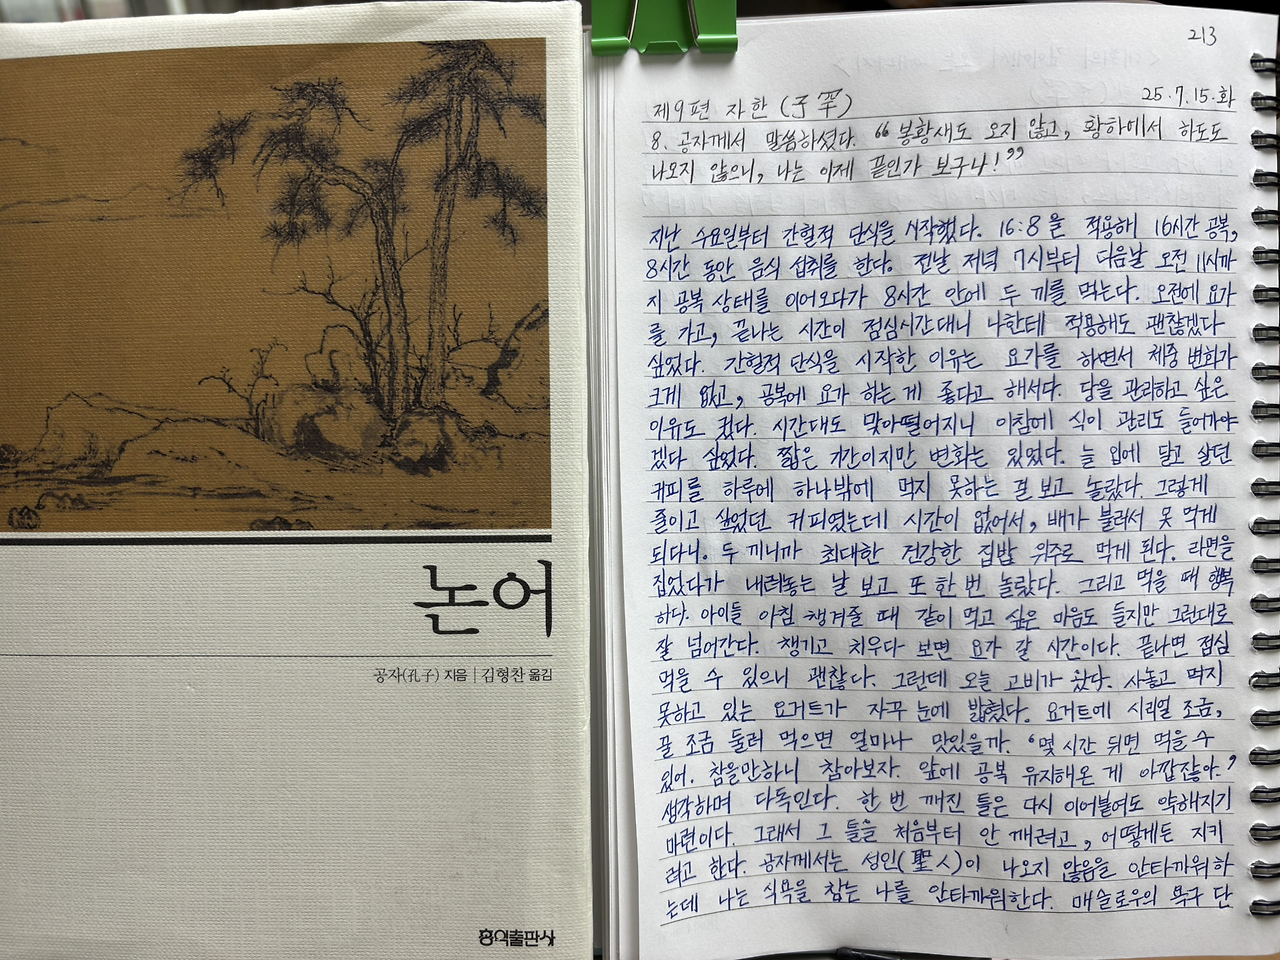 논어
공자(孔子) 지음 | 김형찬 옮김
홍익출판사
213
제9편 자한 (子罕) 25.7.15.화
8. 공자께서 말씀하셨다. "봉황새도 오지 않고, 황하에서 하도도
나오지 않으니, 나는 이제 끝인가 보구나!"
지난 수요일부터 간헐적 단식을 시작했다. 16:8을 적용해 16시간 공복,
8시간 동안 음식 섭취를 한다. 전날 저녁 7시부터 다음날 오전 11시까
지 공복 상태를 이어오다가 8시간 안에 두 끼를 먹는다. 오전에 요가
를 가고, 끝나는 시간이 점심시간대니 나한테 적용해도 괜찮겠다
싶었다. 간헐적 단식을 시작한 이유는 요가를 하면서 체중 변화가
크게 없고, 공복에 요가 하는 게 좋다고 해서다. 당을 관리하고 싶은
이유도 컸다. 시간대도 맞아떨어지니 아침에 식이 관리도 들어가야
겠다 싶었다. 짧은 기간이지만 변화는 있었다. 늘 입에 달고 살던
커피를 하루에 하나밖에 먹지 못하는 걸 보고 놀랐다. 그렇게
줄이고 싶었던 커피였는데 시간이 없어서, 배가 불러서 못 먹게
되다니. 두 끼니까 최대한 건강한 집밥 위주로 먹게 된다. 라면을
집었다가 내려놓는 날 보고 또 한 번 놀랐다. 그리고 먹을 때 행복
하다. 아이들 아침 챙겨줄 때 같이 먹고 싶은 마음도 들지만 그런대로
잘 넘어간다. 챙기고 치우다 보면 요가 갈 시간이다. 끝나면 점심
먹을 수 있으니 괜찮다. 그런데 오늘 고비가 왔다. 사놓고 먹지
못하고 있는 요거트가 자꾸 눈에 밟혔다. 요거트에 시리얼 조금,
꿀 조금 둘러 먹으면 얼마나 맛있을까. '몇 시간 뒤면 먹을 수
있어. 참을만하니 참아보자. 앞에 공복 유지해온 게 아깝잖아.'
생각하며 다독인다. 한 번 깨진 틀은 다시 이어붙여도 약해지기
마련이다. 그래서 그 틀을 처음부터 안 깨려고, 어떻게든 지키
려고 한다. 공자께서는 성인(聖人)이 나오지 않음을 안타까워하
는데 나는 식욕을 참는 나를 안타까워한다. 매슬로우의 욕구 단